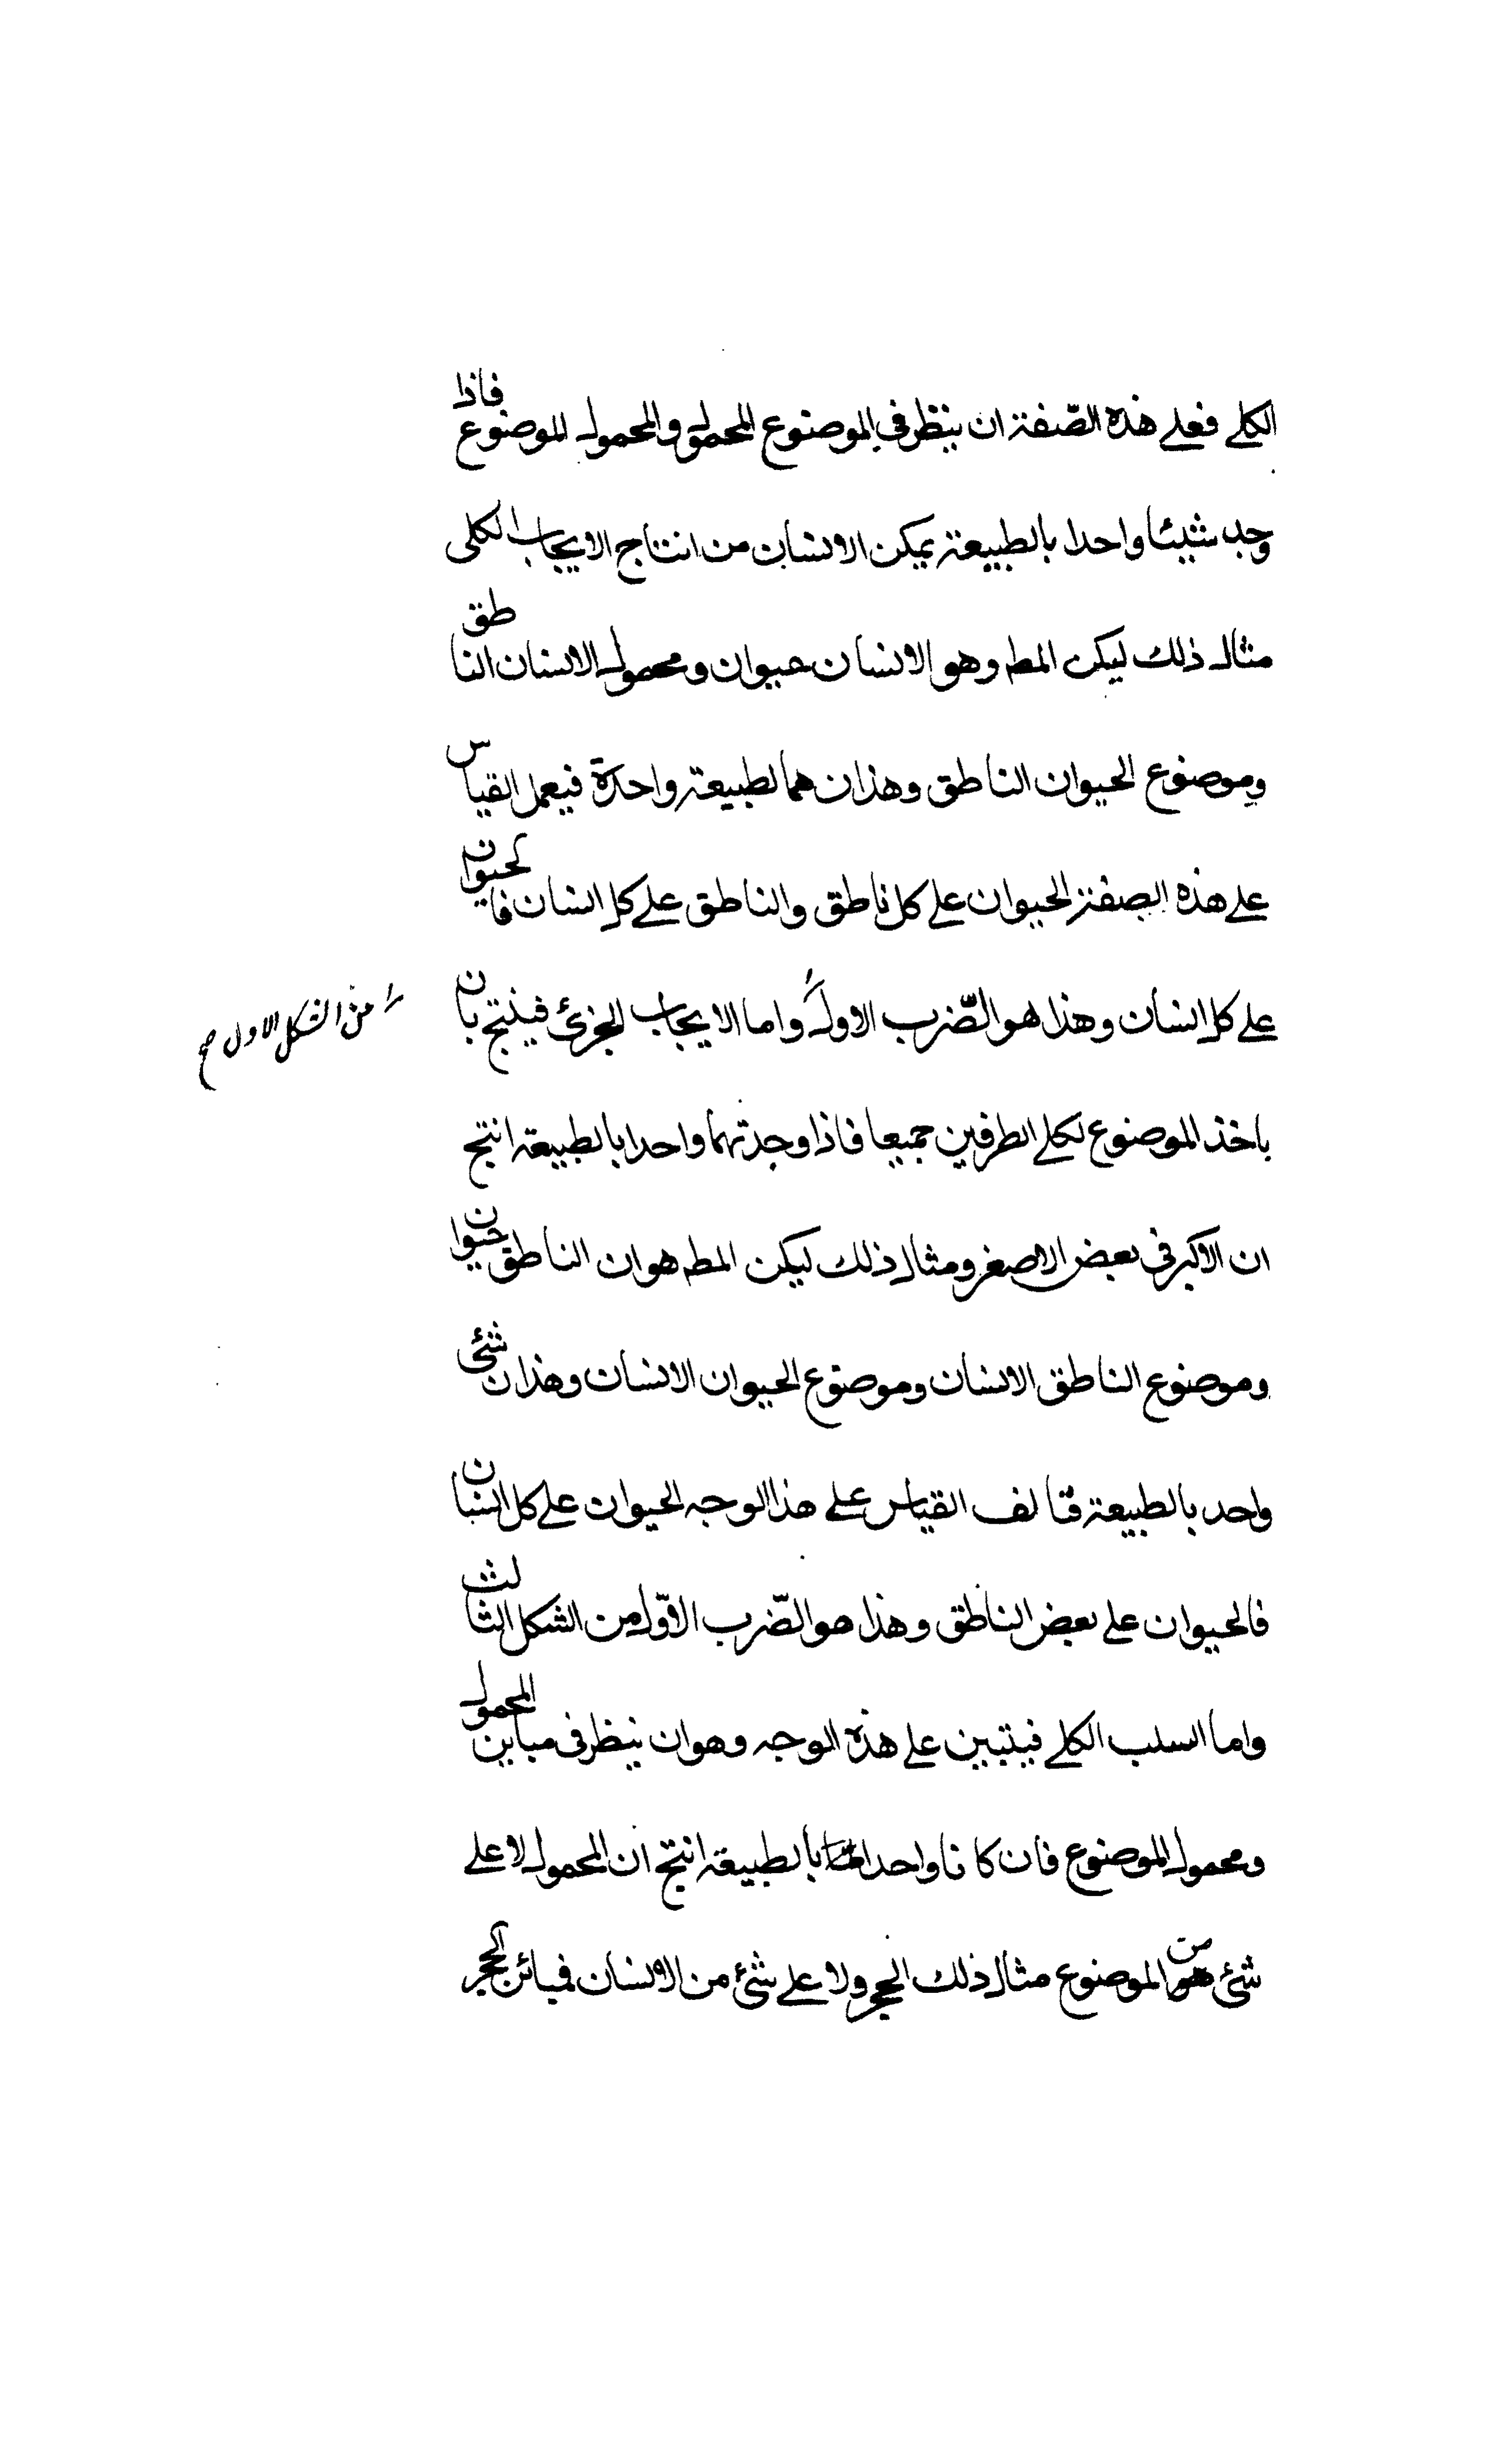 الكلى فعلى هذه الصّفة ان ينظر فى الموضوع المحمول والمحمول للموضوع فاذا
وجد شيئا واحدا بالطبيعة يمكن الانسان من انتاج الايجاب الكلى
مثال ذلك ليكن المط وهو الانسان حيوان ومحمول الانسان الناطق
وموضوع الحيوان الناطق وهذان هما لطبيعة واحدة فيعمل القياس
على هذه الصفة الحيوان على كل ناطق والناطق على كل انسان فالحيوان
على كل انسان وهذا هو الضّرب الاول واما الايجاب الجزئ فينتج بان
من الشكل الاول صح
ياخذ الموضوع لكلى الطرفين جميعا فاذا وجدتهما واحدا بالطبيعة انتج
ان الاكبر فى بعض الاصغر ومثال ذلك ليكن المط هو ان الناطق حيوان
وموضوع الناطق الانسان وموضوع الحيوان الانسان وهذان شئ
واحد بالطبيعة فتالف القياس على هذا الوجه الحيوان على كل انسان
فالحيوان على بعض الناطق وهذا هو الضّرب الاوّل من الشكل الثالث
واما السلب الكلى فيتبين على هذه الوجه وهو ان ينظر فى مباين المحمول
ومحمول الموضوع فان كانا واحدا بالطبيعة انتج ان المحمول لا على
شئ من الموضوع مثال ذلك الحجر ولا على شئ من الانسان فمبائن الحجر